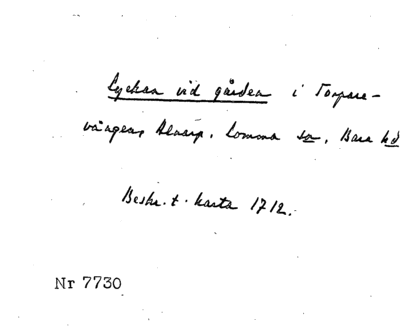 Lyckan vid gården i Torpare-
vången, Alnarp, Lomma sn, Bara hd
Beskr. t. karta 1712.
Nr 7730